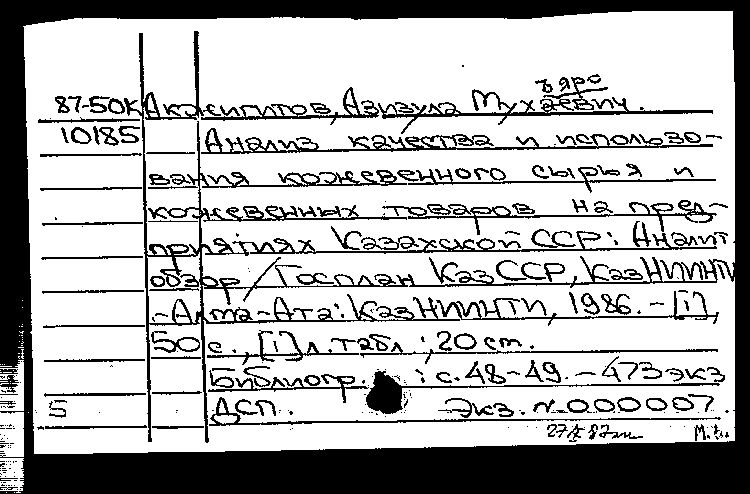 ъяро
87-50К Акжигитов, Азизула Мухаевич.
10185 Анализ качества и использо-
вания кожевенного сырья и
кожевенных товаров на пред-
приятиях Казахской ССР: Аналит.
обзор / Госплан КазССР, КазНИИНТИ
.-Алма-Ата: КазНИИНТИ, 1986. - [1],
50 с., [1] л. табл.; 20 см.
Библиогр. : с. 48-49. - 473 экз
5 ДСП. Экз. N 000007.
27 IV 87